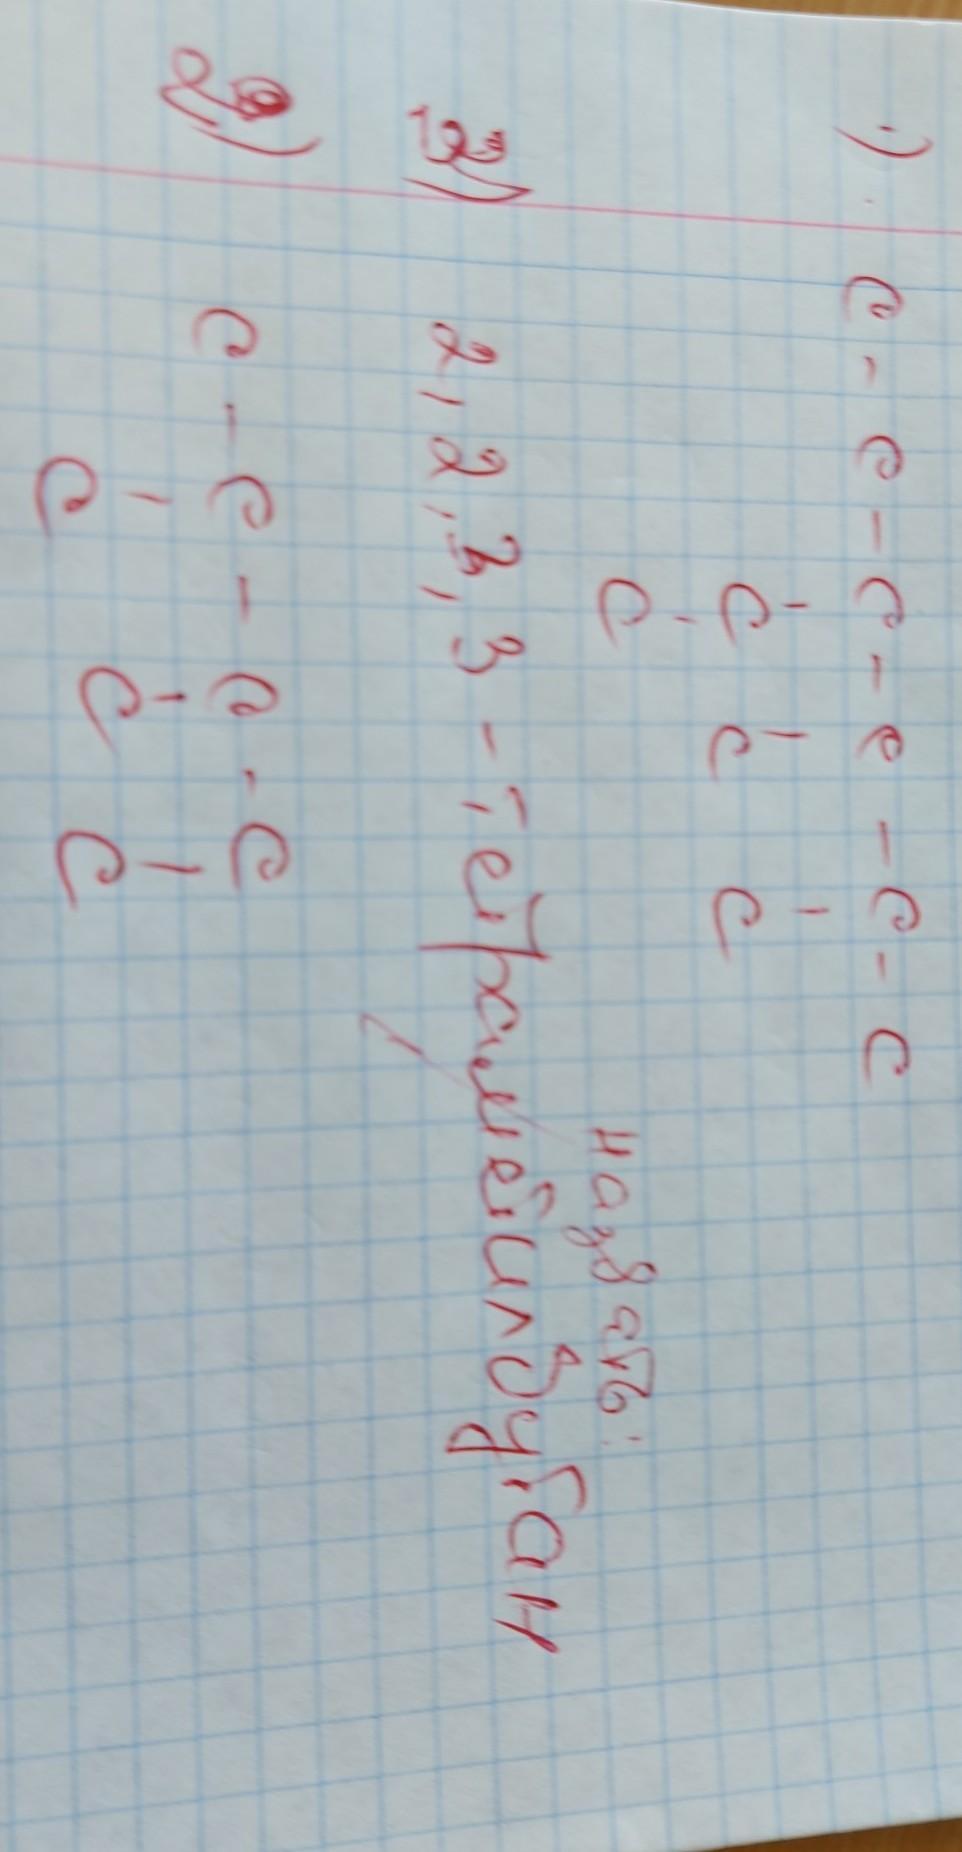 1) C - C - C - C - C - C
C C C
C
назвать:
3) 2,2,3,3 - тетраметилбутан
2) C - C - C - C
C C C